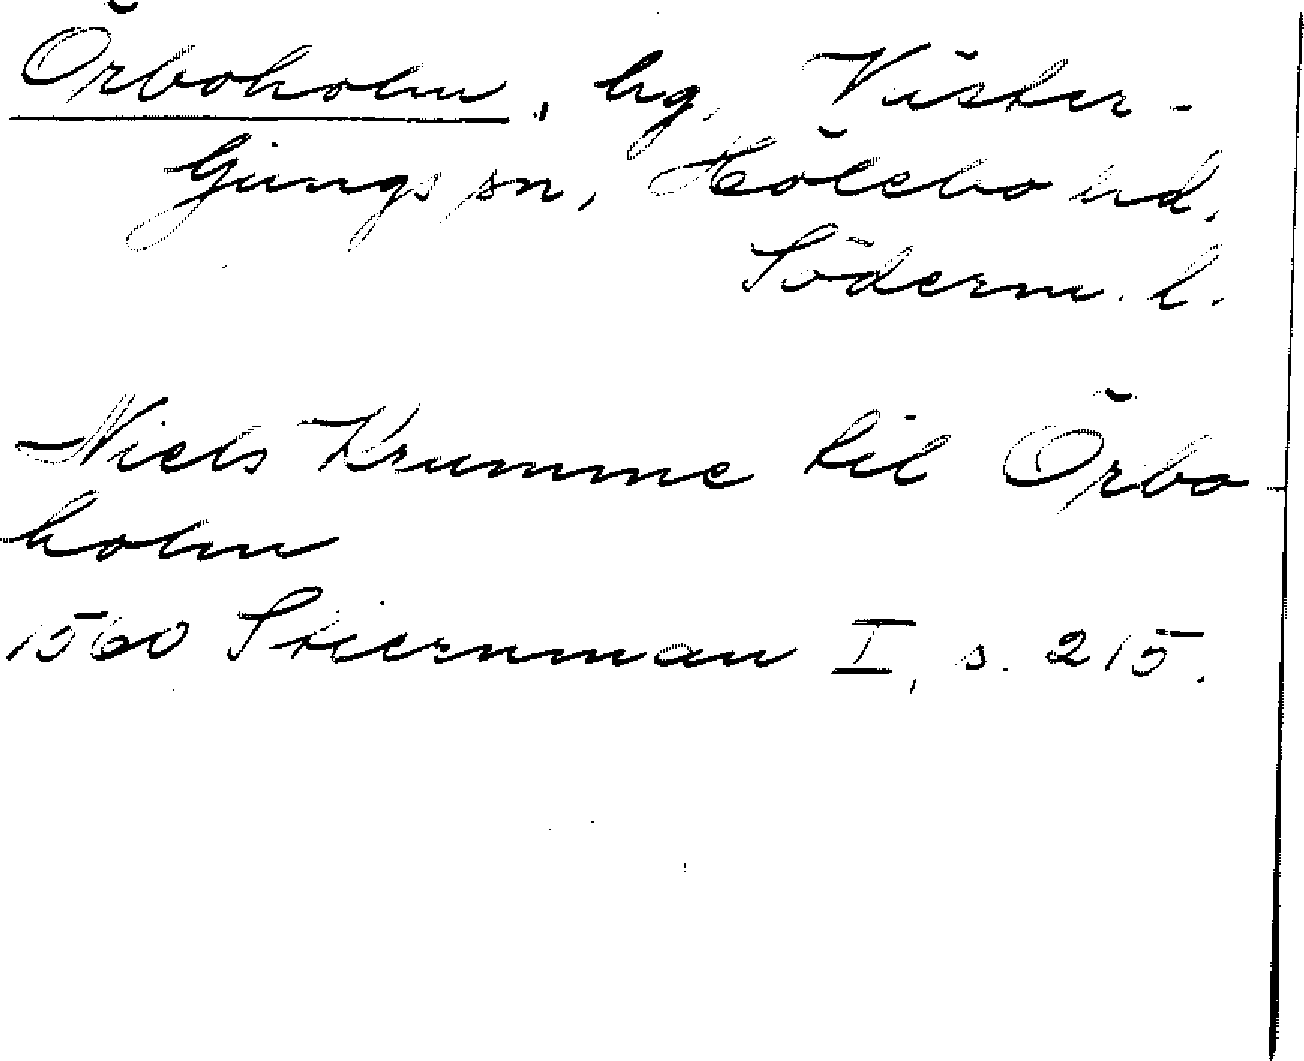 Örboholm, hg, Väster-
ljungs sn, Hölebo hd.
Söderm. l.
Niels Krumme til Örbo-
holm
1560 Stiernman I, s. 215.